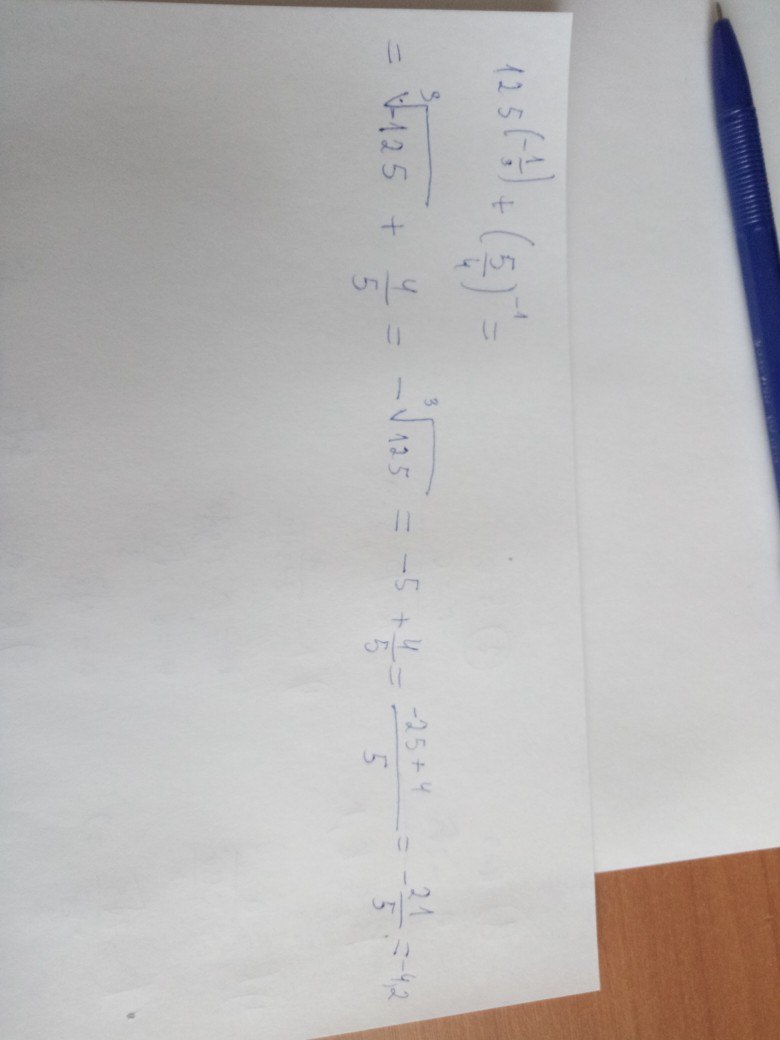 125(-1/3) + (5/4)^-1 =
= ∛-125 + 4/5 = -∛125 = -5 + 4/5 = -25+4/5 = -21/5 = -4,2